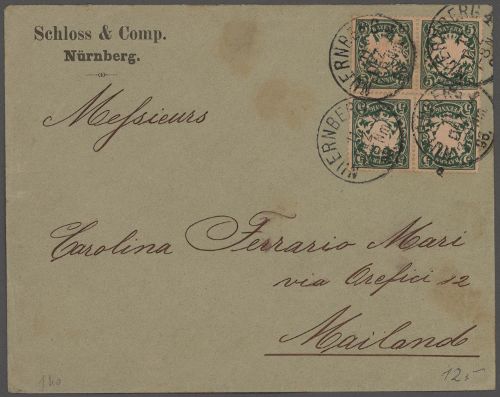 Schloss & Comp.
Nürnberg.
NUERNBERG
NUERNBERG
BAYERN
Messieurs
Carolina Ferrario Mari
via Orefici 12
Mailand
12.-